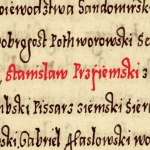 iewodztwa Sandomirsk
Dobrgost Pothworowski Se
Stanisław Przyiemski z
mbski Pissarz ziemski Sierа
ski Gabriel Hasłowski wo